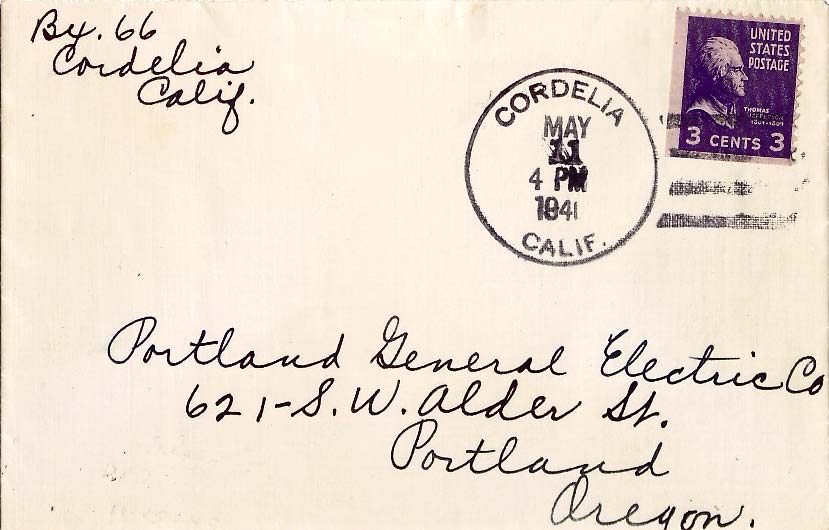 Bx. 66
Cordelia
Calif.
CORDELIA
MAY
11
4 PM
1941
CALIF.
UNITED
STATES
POSTAGE
THOMAS
JEFFERSON
1801-1809
3 CENTS 3
Portland General Electric Co
621-S.W. Alder St.
Portland
Oregon.